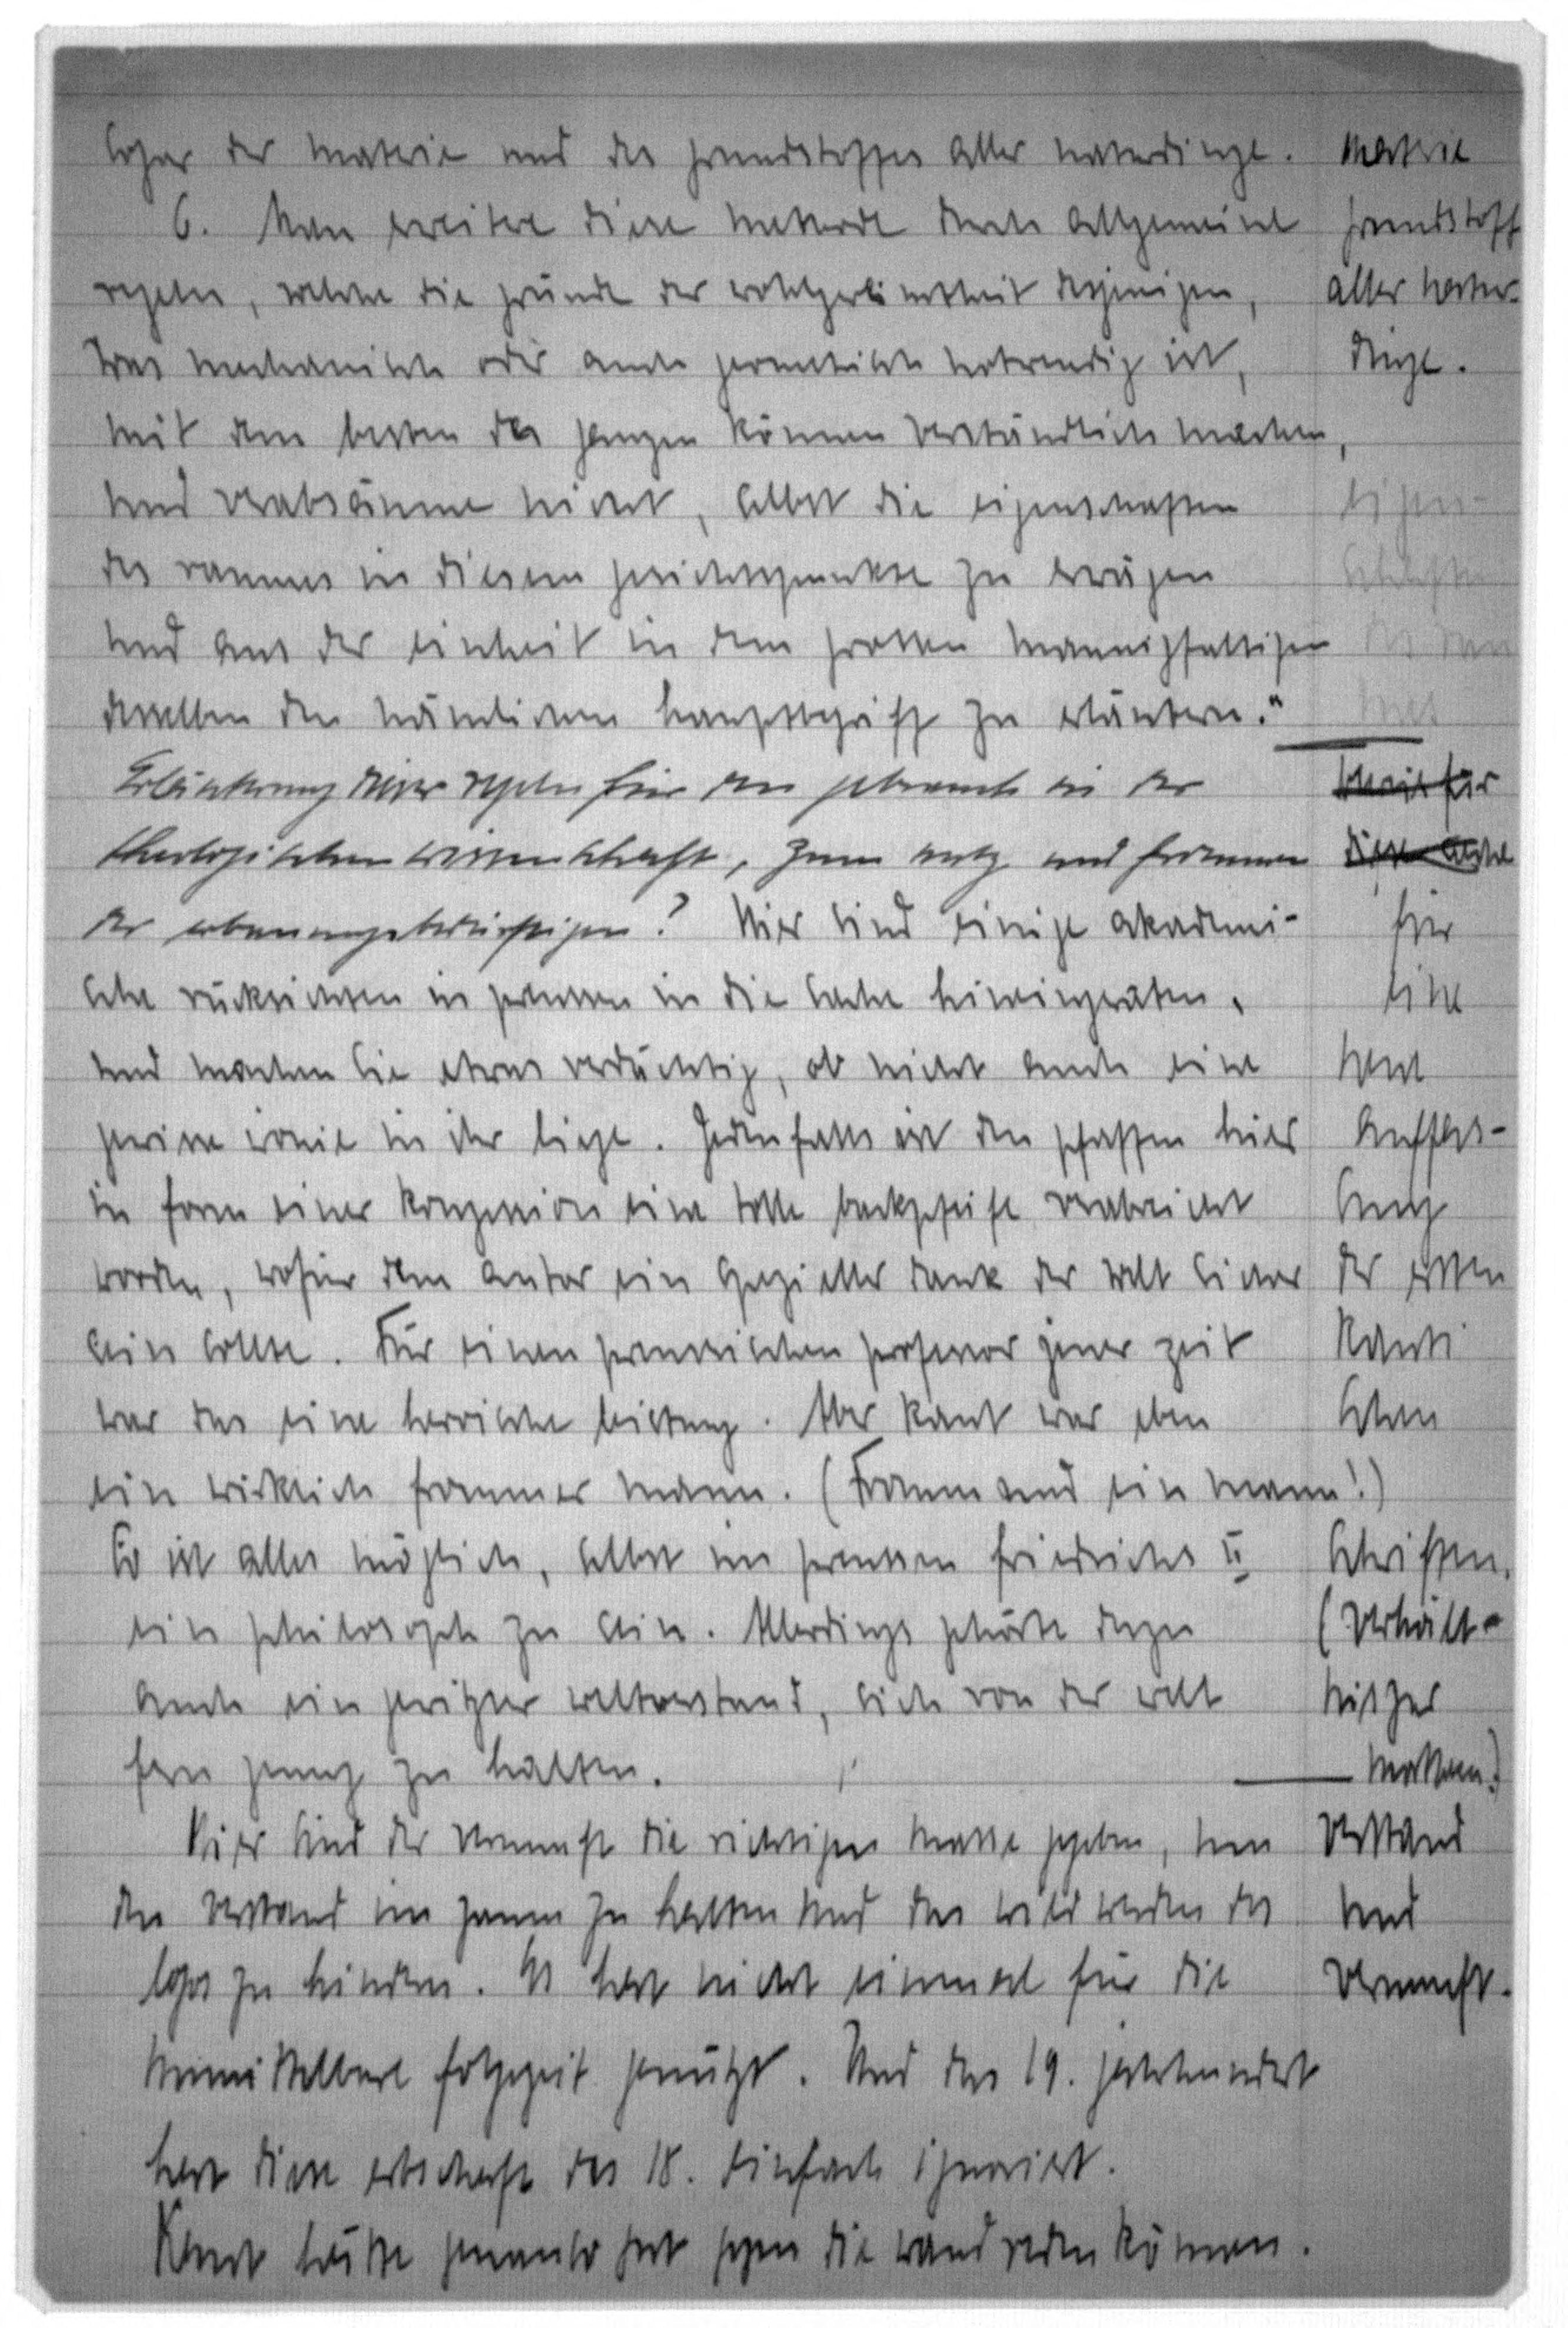 sogar der materie und des grundstoffes aller naturdinge.
6. Man erweitere diese methode durch allgemeine
regeln, welche die gründe der wohlgereimtheit desjenigen,
was mechanisch oder auch geometrisch notwendig ist,
mit dem besten des ganzen können verständlich machen,
und verabsäume nicht, selbst die eigenschaften
des raumes in diesem gesichtspunkte zu erwägen
und aus der einheit in dem grossen mannigfaltigen
desselben den nämlichen hauptbegriff zu erläutern."
Erläuterung dieser regeln für den gebrauch in der
theologischen wissenschaft, zum nutz und frommen
der erbauungsbedürftigen? Hier sind einige akademi-
sche rücksichten in preussen in die sache hineingeraten,
und machen sie etwas verdächtig, ob nicht auch eine
gewisse ironie in ihr liege. Jedenfalls ist den pfaffen hier
in form einer konzession eine tolle backpfeife verabreicht
worden, wofür dem autor ein spezieller dank der welt sicher
sein sollte. Für einen preussischen professor jener zeit
war das eine heroische leistung. Aber Kant war eben
ein wirklich frommer mann. (Fromm und ein mann!)
So ist alles möglich, selbst im preussen friedrichs II
ein philosoph zu sein. Allerdings gehörte dazu
auch ein gewitzter weltverstand, sich von der welt
fern genug zu halten.
Hier sind der vernunft die richtigen masse gegeben, um
den verstand im zaum zu halten und das wild werden des
logos zu hindern. Es hat nicht einmal für die
unmittelbare folgezeit genützt. Und das 19. jahrhundert
hat diese erbschaft des 18. einfach ignoriert.
Kant hätte genauso gut gegen die wand reden können.
materie
grundstoff
aller natur-
dinge.
eigen-
schaften
des rau
mes
für
diese
für
eine
neue
auffas-
sung
der ersten
Kanti
schen
schriften.
(Verhält-
nis zur
Verstand
und
Vernunft.